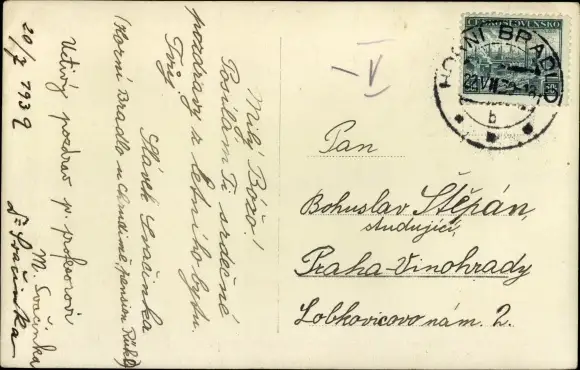 Milý Božo!
Posílám Ti srdečné
pozdravy z letního bytu.
Tvůj
Slávek Svačinka
(Horní Bradlo u Chrudimě, pension Rükl)
Uctivý pozdrav p. profesorovi
M. Svačinka
Dr Svačinka
20/7 1932
– V
ČESKOSLOVENSKO
HORNÍ BRADLO
b
Pan
Bohuslav Štěpán,
studující,
Praha-Vinohrady
Lobkovicovo nám. 2.